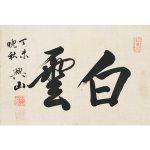 白雲
丁未
晚秋
山